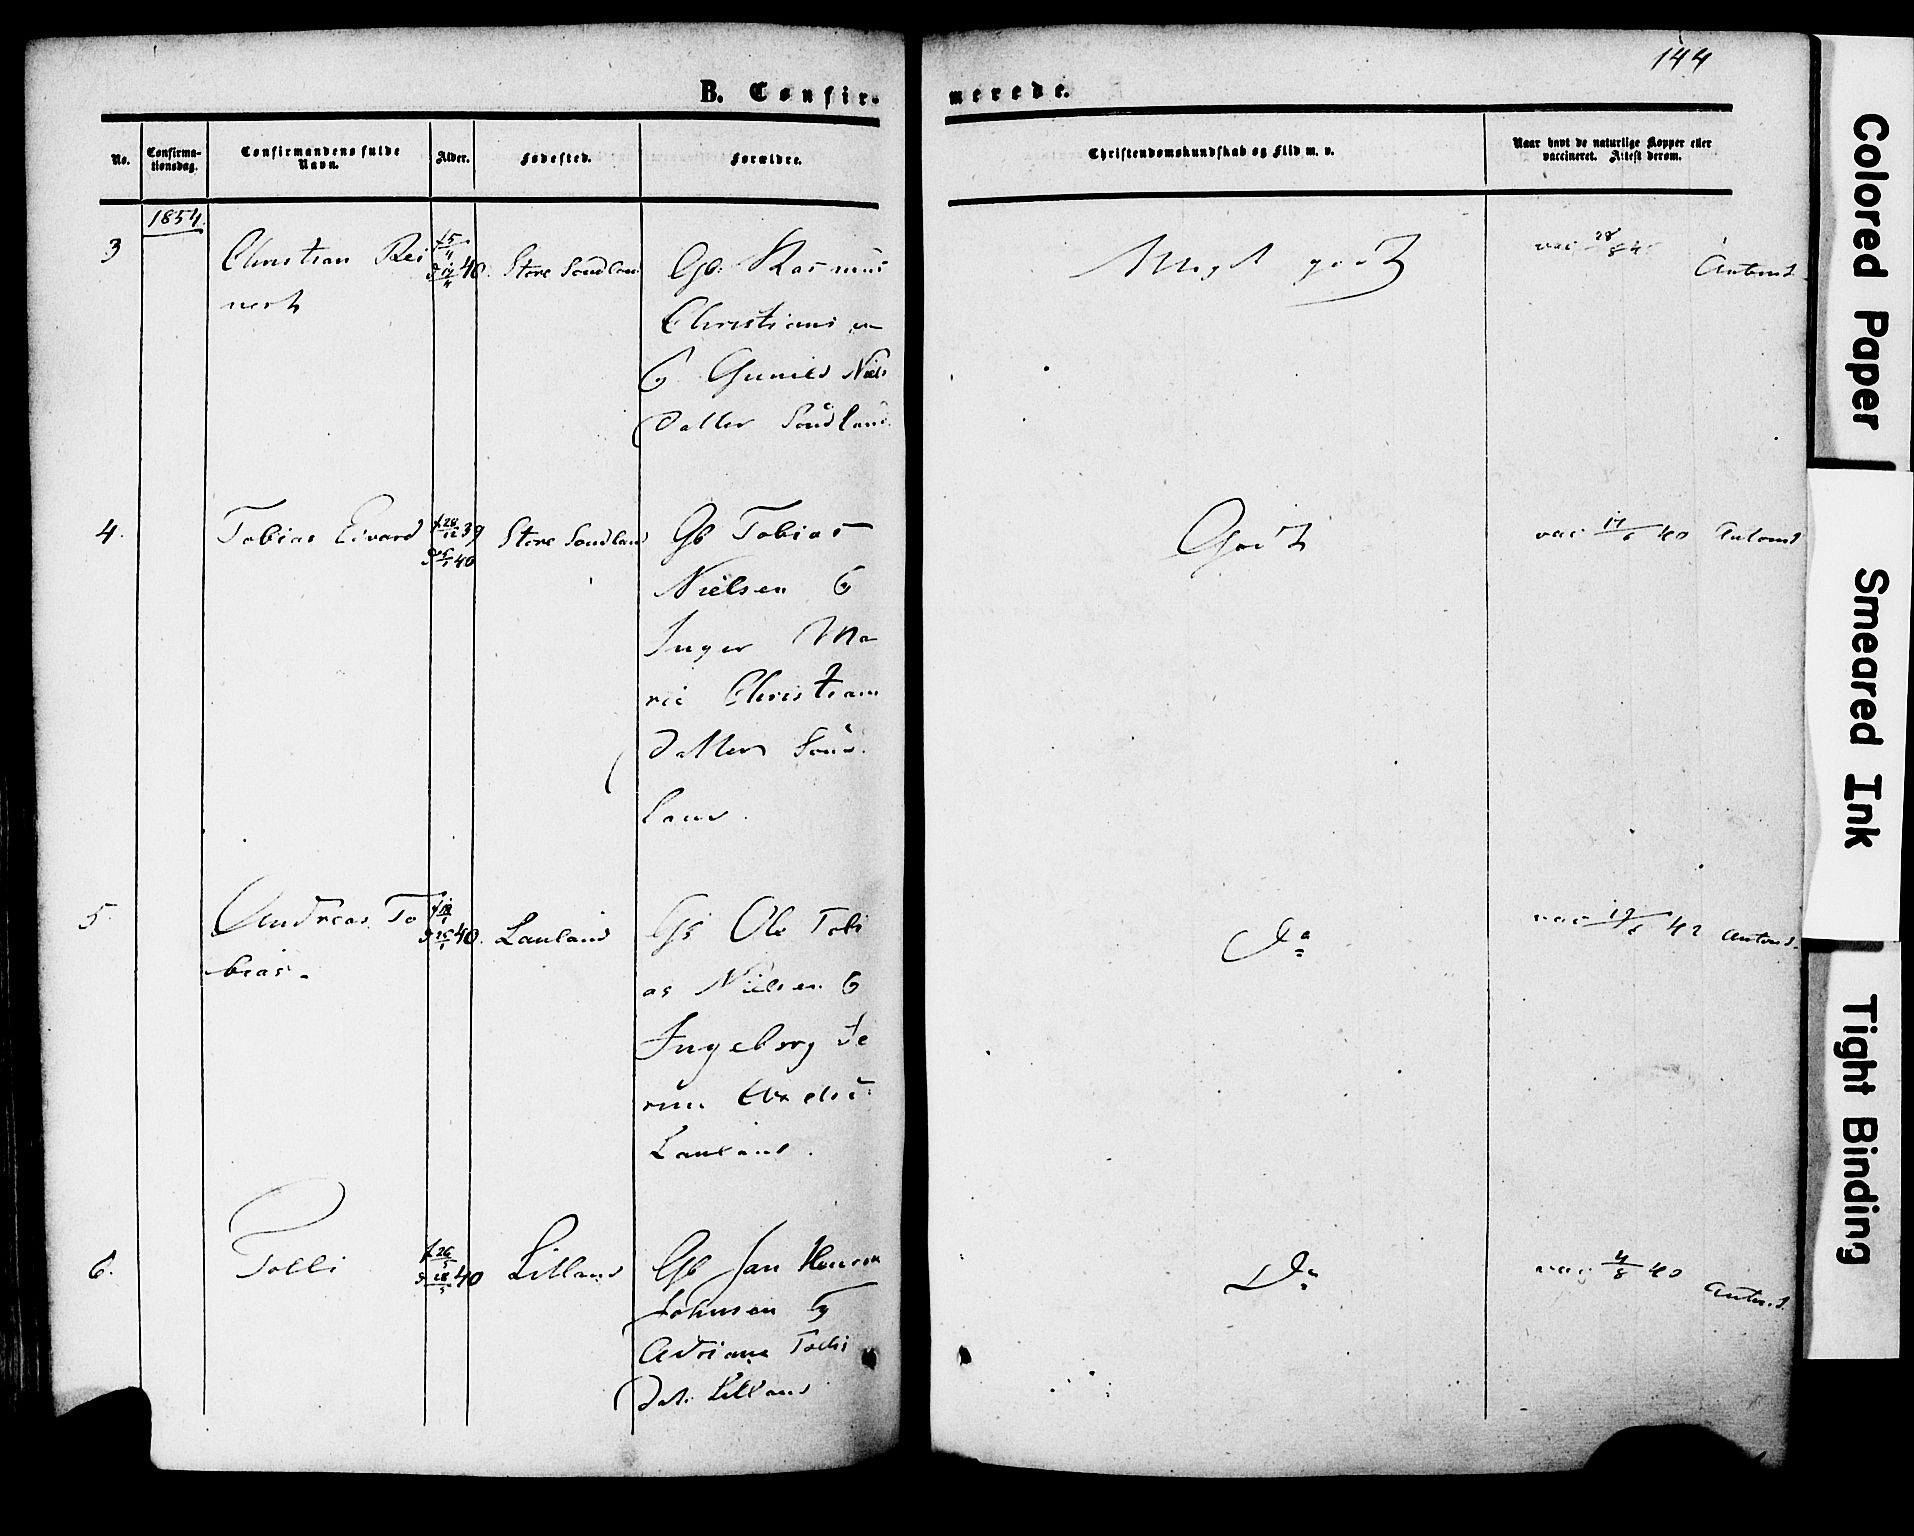 144
B. Confirmerede.
No.
Confirma-
tionsdag.
Confirmandens fulde
Navn.
Alder.
Fødested.
Forældre.
Christendomskundskab og Flid m. v.
Naar havt de naturlige Kopper eller
vaccineret. Attest derom.
1854.
3
Christian Rei
nert
40.
Store Sondland
Gb. Rasmus
Christians
Gunild Niels
Datter Sondland
Meget godt
vac
4.
Tobias Edvard
f 28/12 39
d 5/1 40
Store Sondland
Gb Tobias
Nielsen &
Inger Ma
rie Christians
Datter Sond
land.
Godt
vac 40
5.
Andreas To
bias.
40.
Lauland
Gb Ole Tobi
as Nielsen &
Ingeborg Se
rine
Lauland.
Do
vac 42
6.
Tolli
f 26/3
d 28/5 40
Lilland
Gb Jan Henrik
Johnsen &
Adriane Tollis
Dat. Lilland
Do
vac 4/8 40
Colored Paper
Smeared Ink
Tight Binding